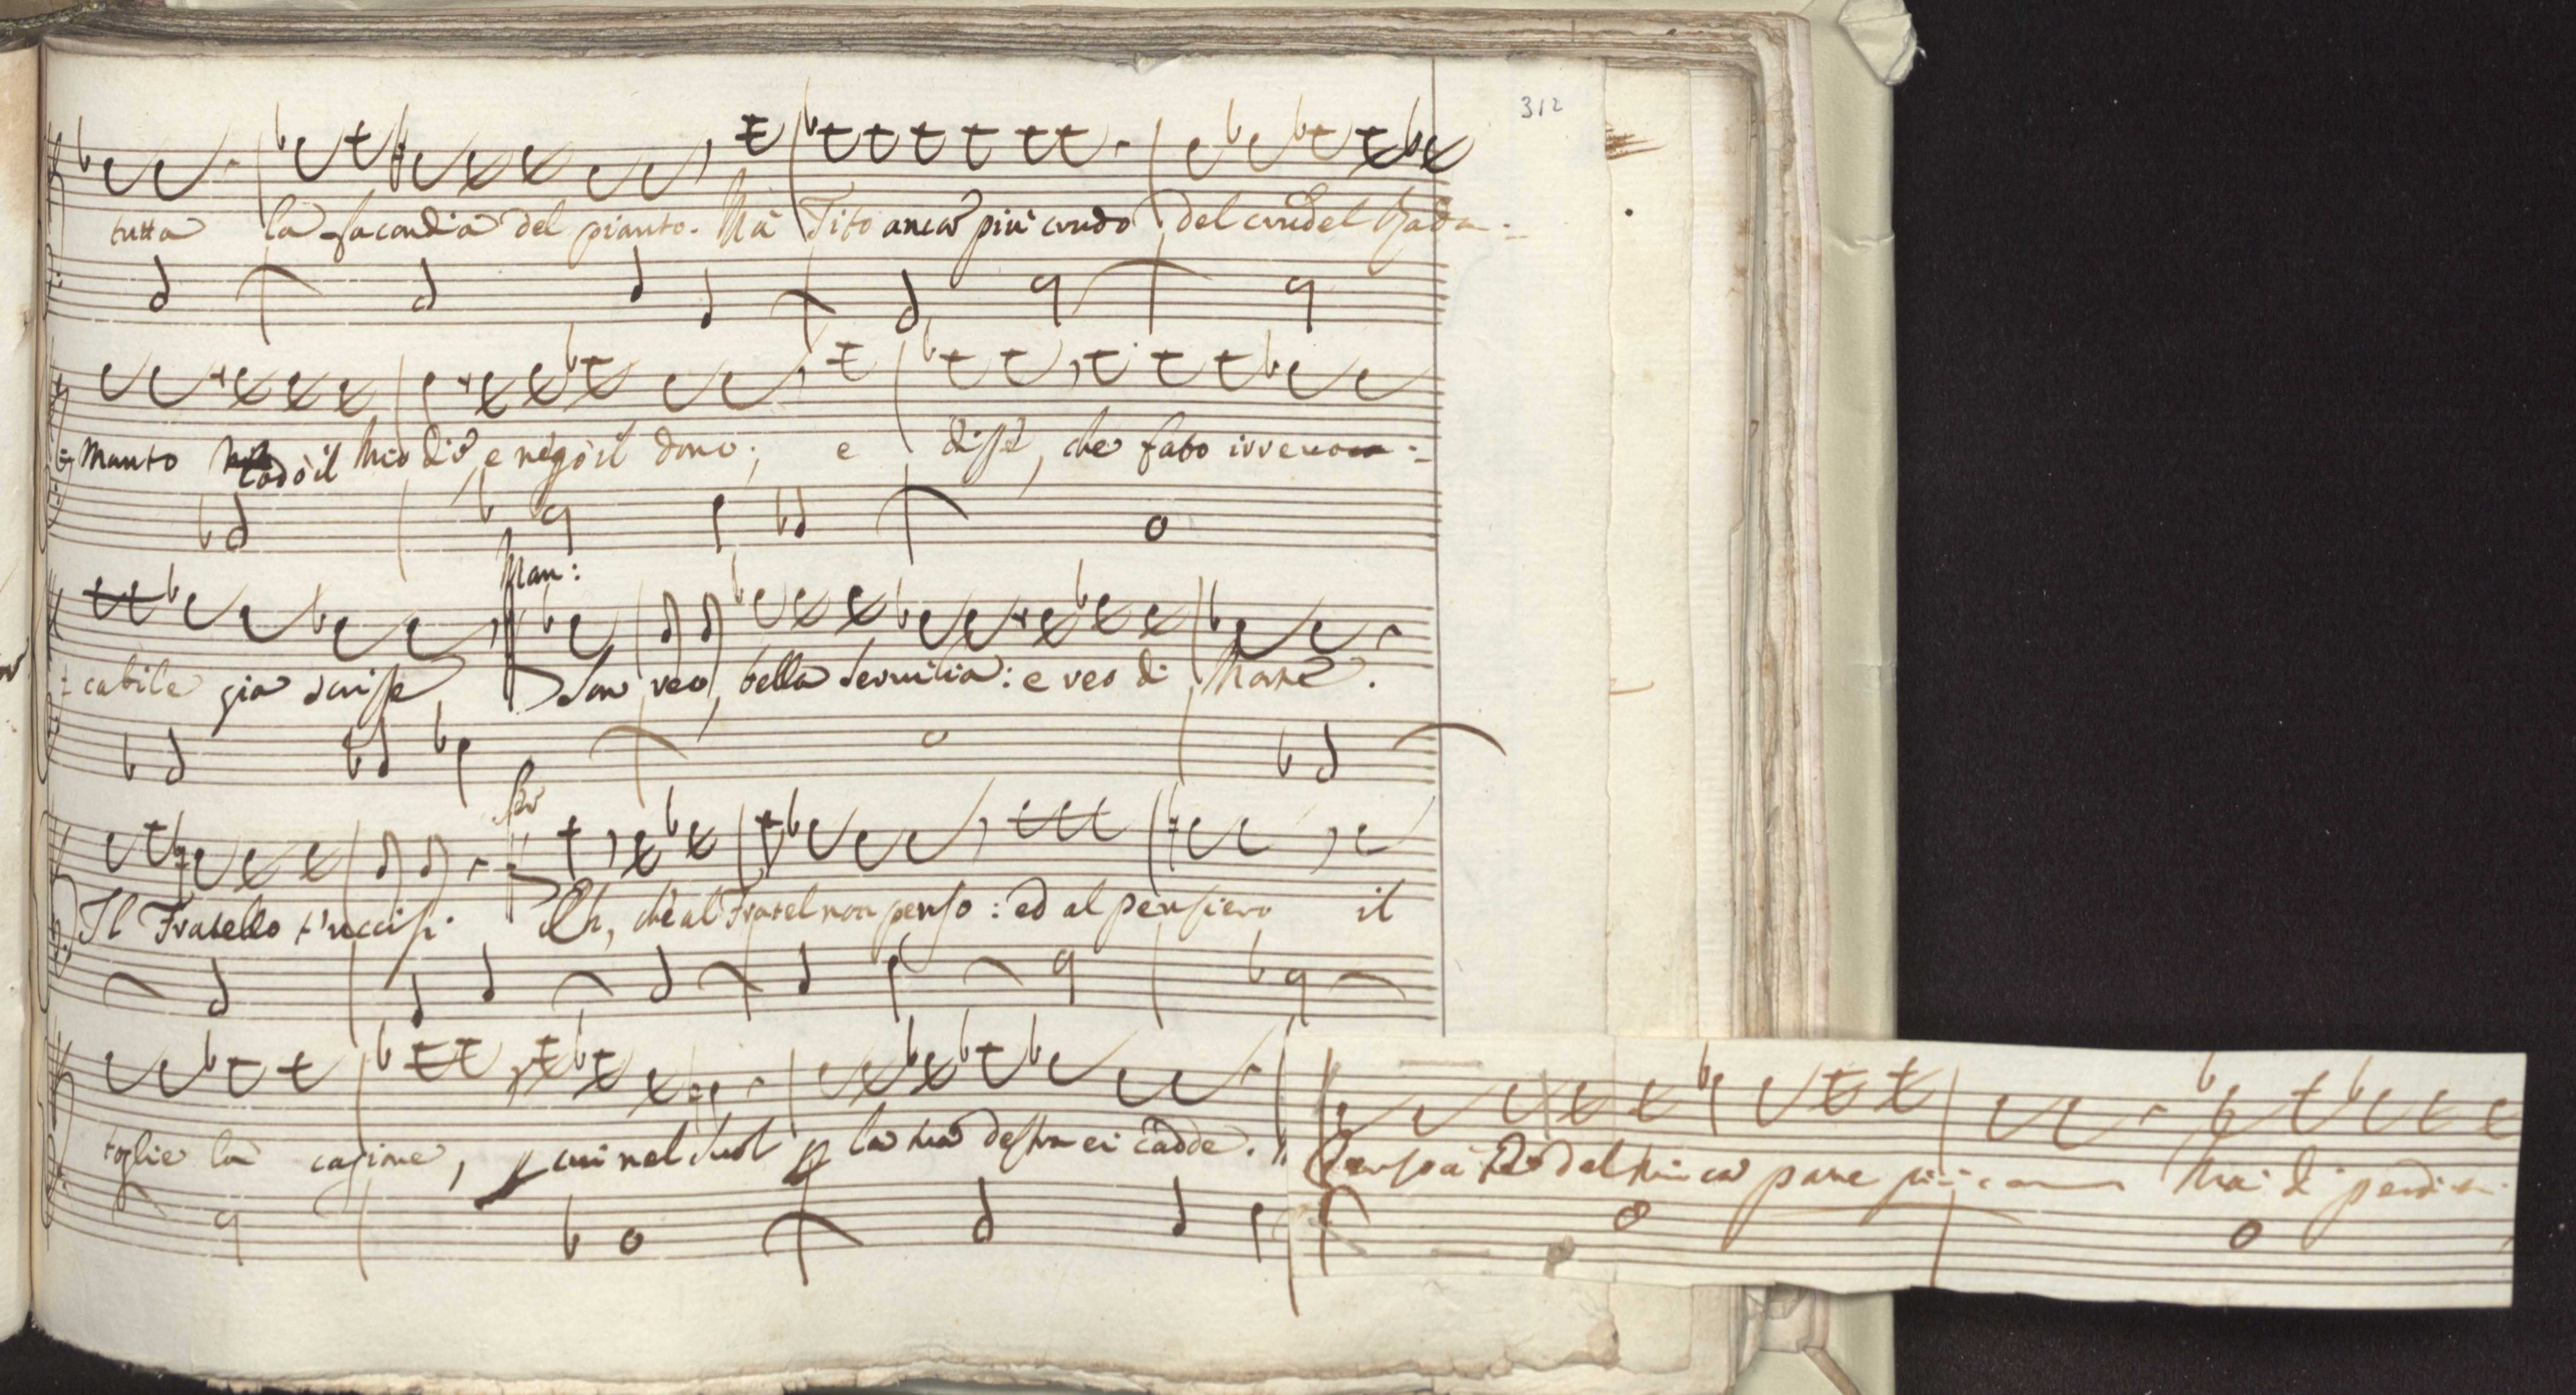 312
tutta la facondia del pianto. Mà Tito ancor più crudo del crudel Rada-
=manto lodò il mio dir, e negò il dono; e disse, che fato irrevoca=
Man:
=cabile già scrisse Son reo, bella Servilia: e reo di Morte.
Ser
Il Fratello t'uccisi. Eh, che al Fratel non penso: ed al pensiero il
toglie la cagione, p cui nel suol p la tua destra ei cadde. Pensa à Te del